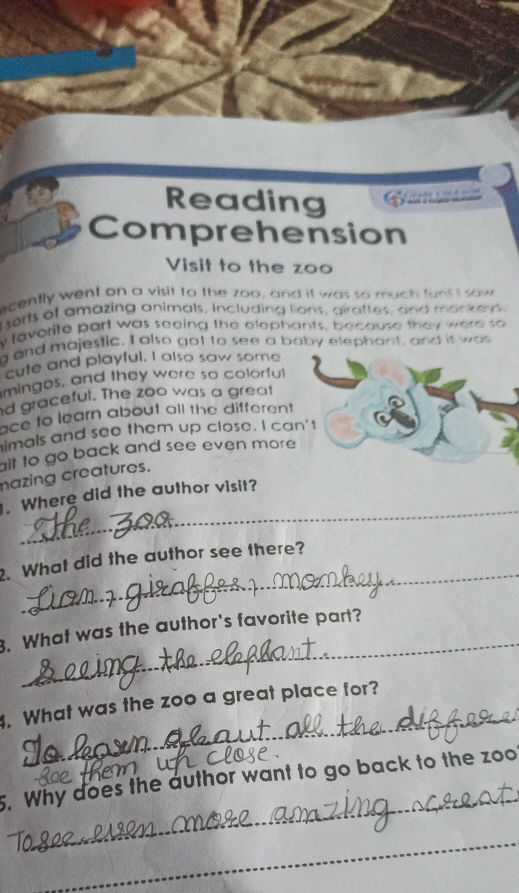 Reading
Comprehension
Visit to the zoo
ecently went on a visit to the zoo, and it was so much fun! I saw
sorts of amazing animals, including lions, giraffes, and monkeys.
y favorite part was seeing the elephants, because they were so
g and majestic. I also got to see a baby elephant, and it was
cute and playful. I also saw some
mingos, and they were so colorful
nd graceful. The zoo was a great
ace to learn about all the different
imals and see them up close. I can't
ait to go back and see even more
mazing creatures.
1. Where did the author visit?
The zoo
2. What did the author see there?
Lion, giraffes, monkey
3. What was the author's favorite part?
Seeing the elephant.
4. What was the zoo a great place for?
To learn about all the differe
see them up close.
5. Why does the author want to go back to the zoo
To see even more amazing creat